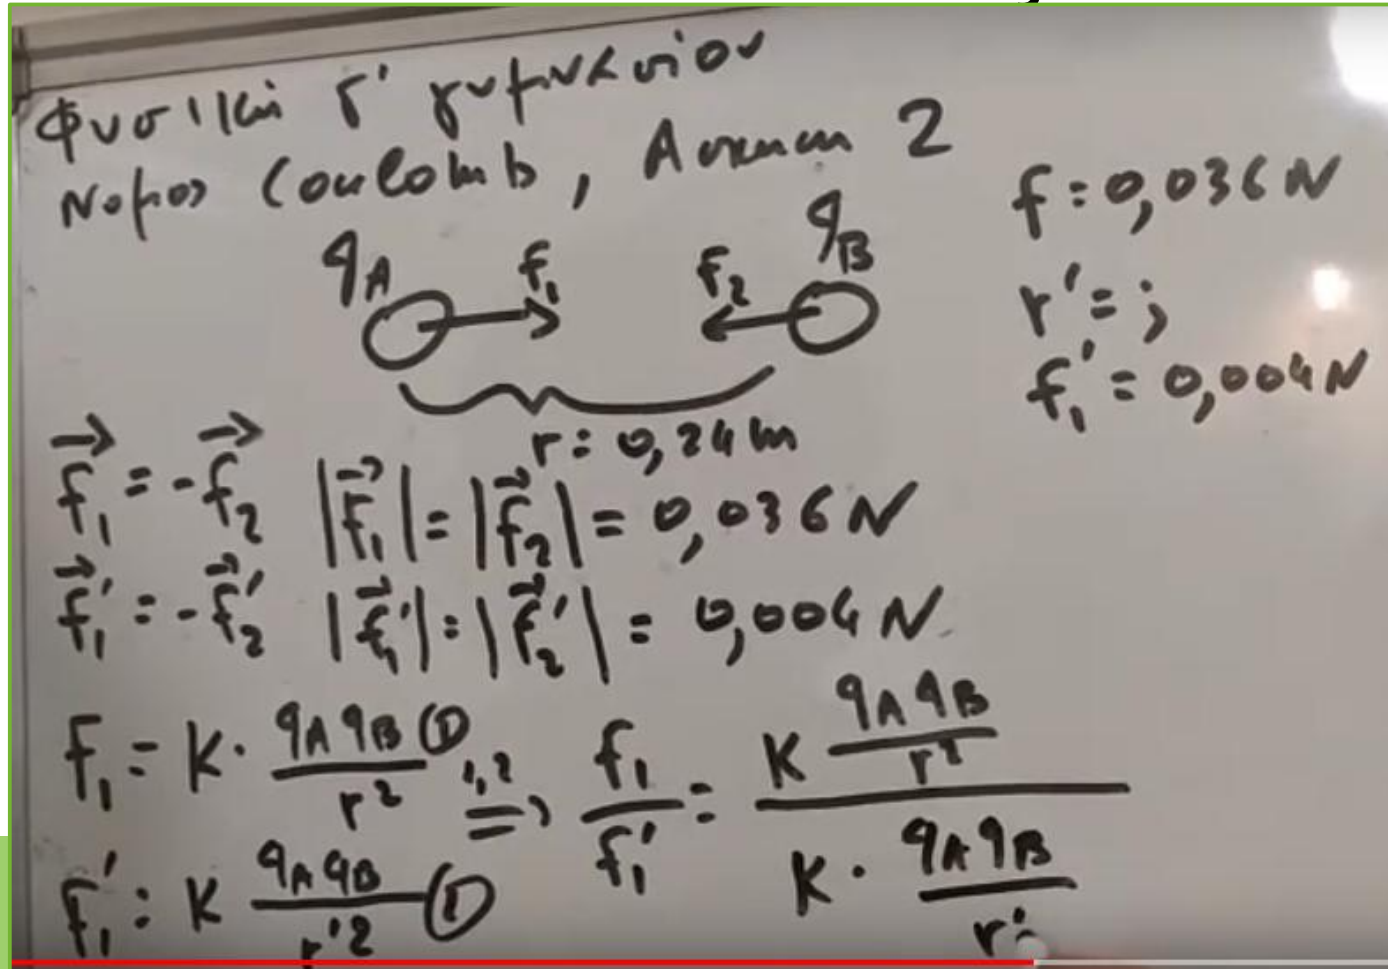 Φυσική Γ' γυμνασίου
Νόμος Coulomb, Άσκηση 2
qA F₁ F₂ qB
r = 0,24m
F = 0,036N
r' = ;
F₁' = 0,004N
F₁ = -F₂ |F₁| = |F₂| = 0,036N
F₁' = -F₂' |F₁'| = |F₂'| = 0,004N
F₁ = K · qA qB / r² ① 1,2 ⇒ F₁ / F₁' = K qA qB / r² / K · qA qB / r'
F₁' = K qA qB / r'² ①